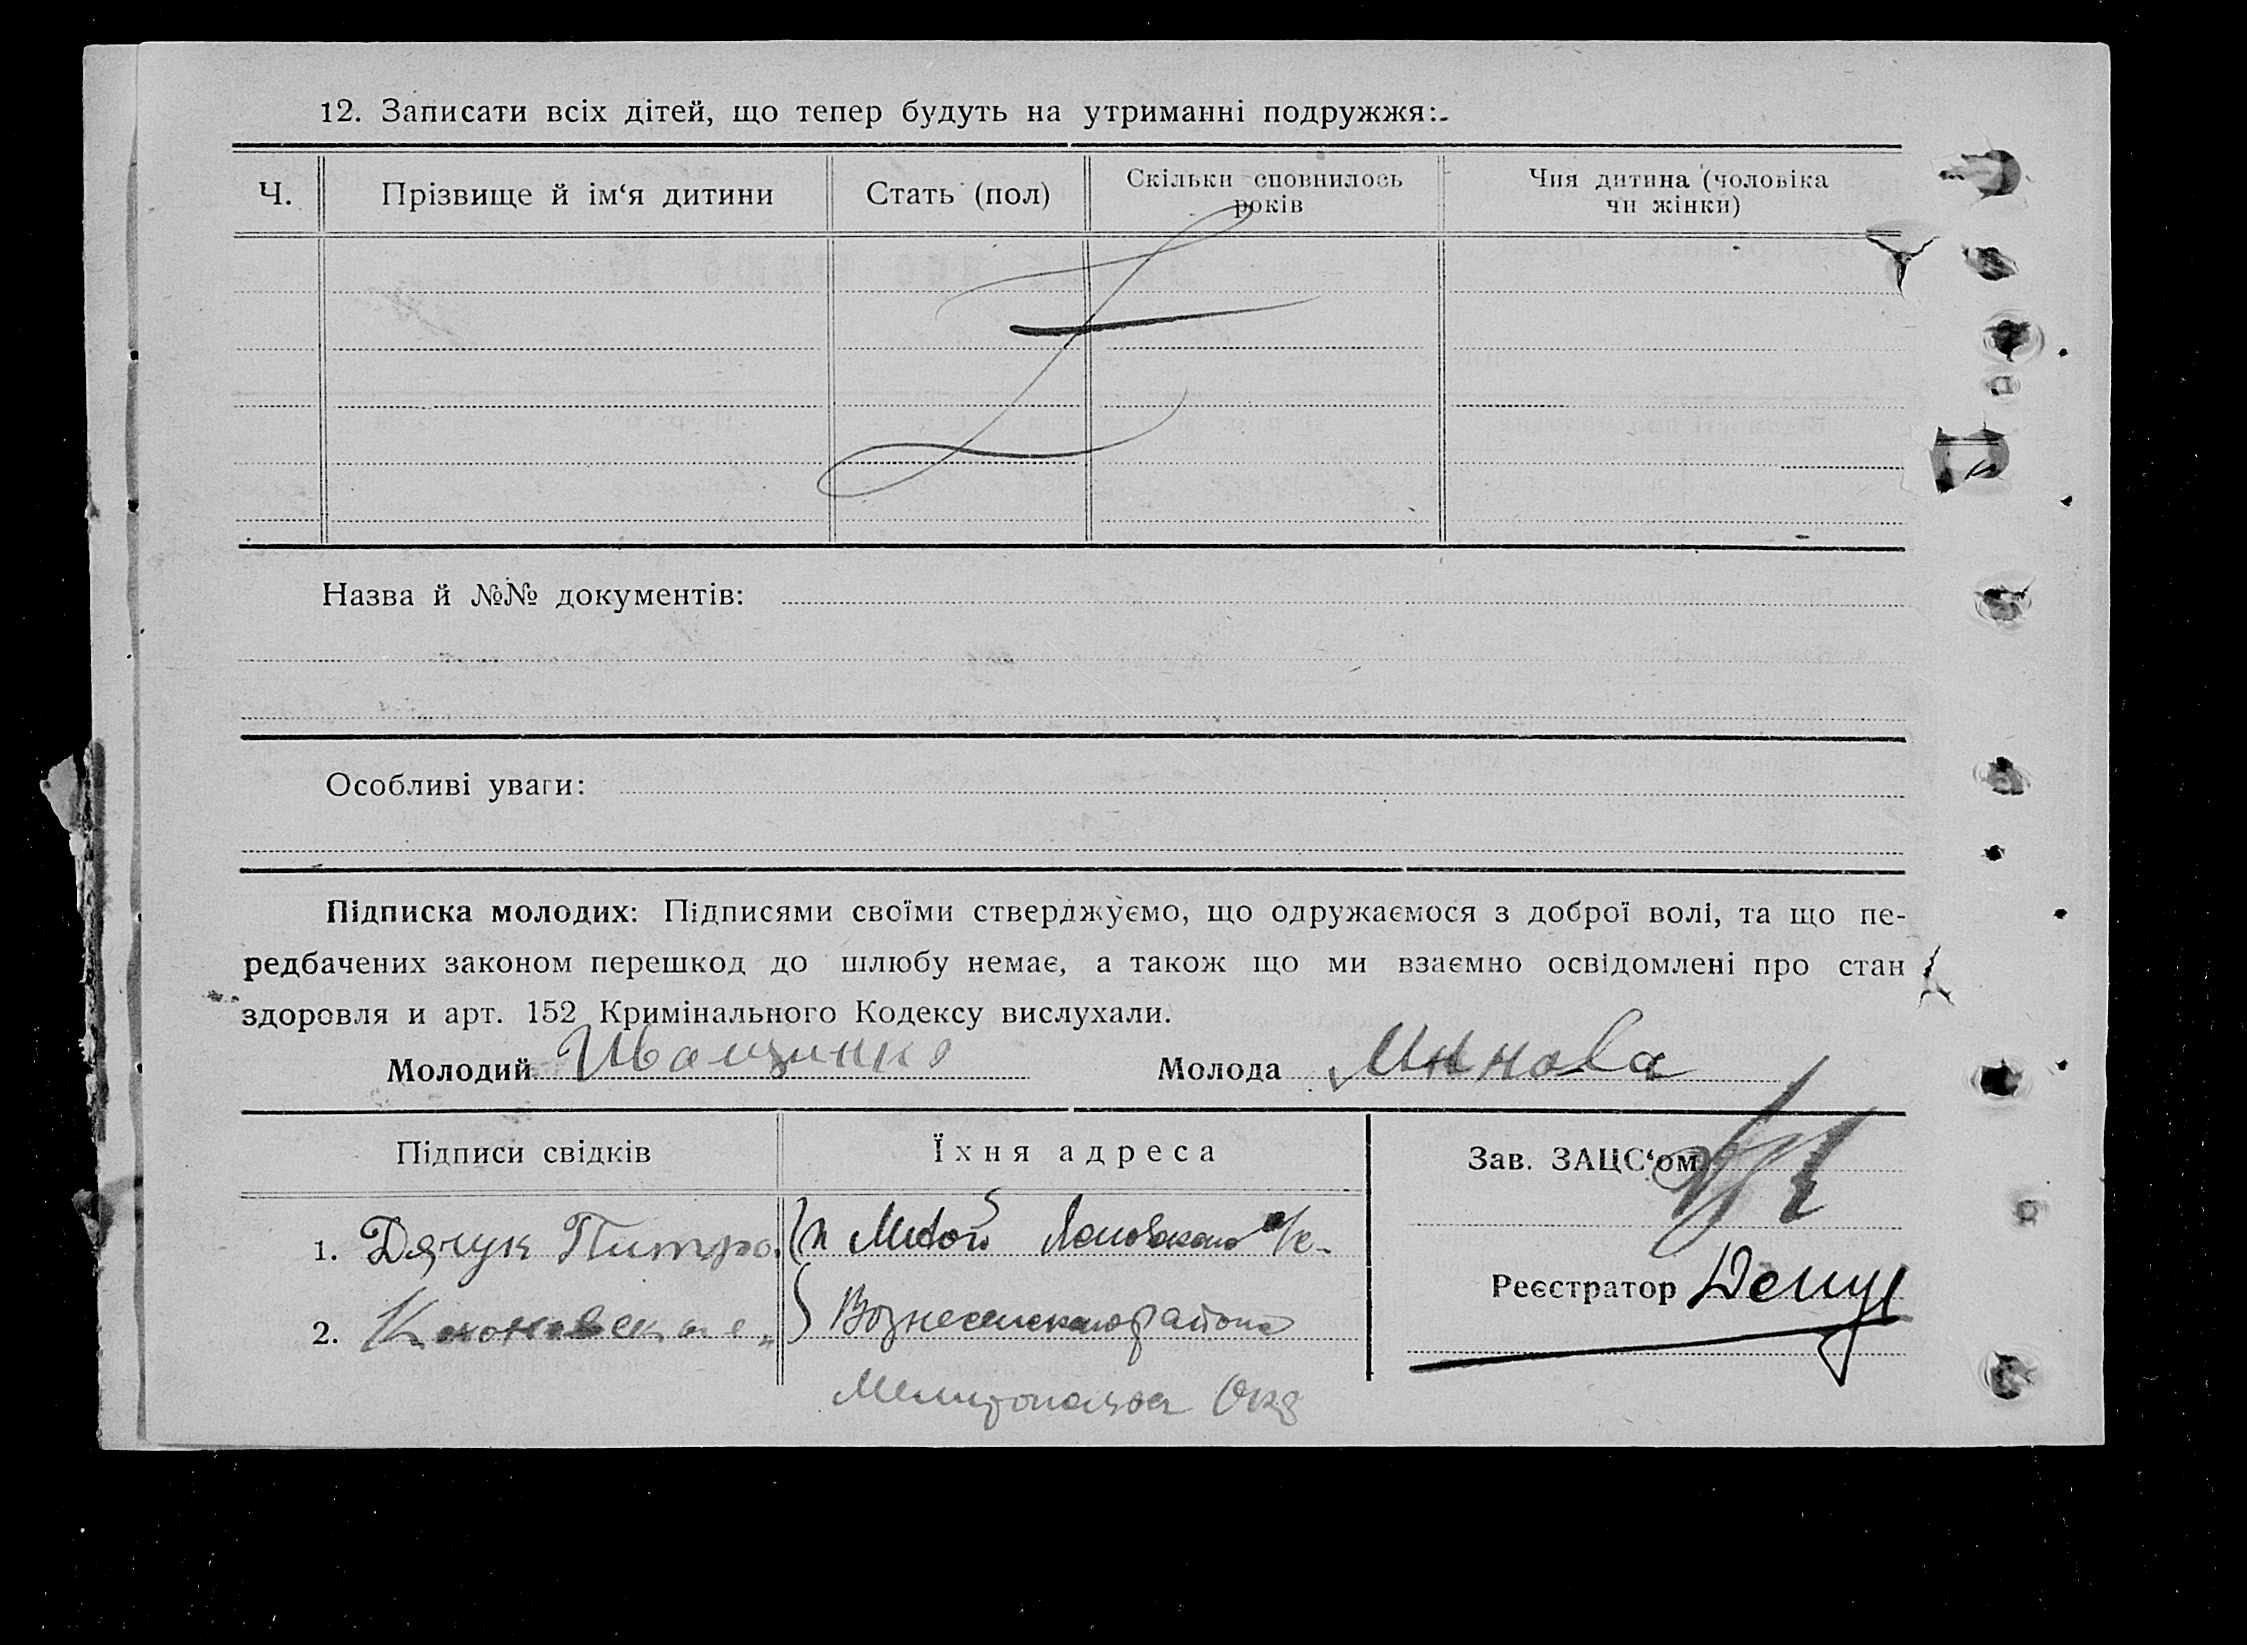 12. Записати всіх дітей, що тепер будуть на утриманні подружжя:
Ч.
Прізвище й ім‘я дитини
Стать (пол)
Скільки сповнилось
років
Чия дитина (чоловіка
чи жінки)
Назва й №№ документів:
Особливі уваги:
Підписка молодих: Підписями своїми стверджуємо, що одружаємося з доброї волі, та що пе-
редбачених законом перешкод до шлюбу немає, а також що ми взаємно освідомлені про стан
здоровля и арт. 152 Кримінального Кодексу вислухали.
Молодий Иващинко
Молода Миннова
Підписи свідків
Їхня адреса
Зав. ЗАЦС‘ом
1. Дячук Питро
2.
Вознесенского района
Реєстратор